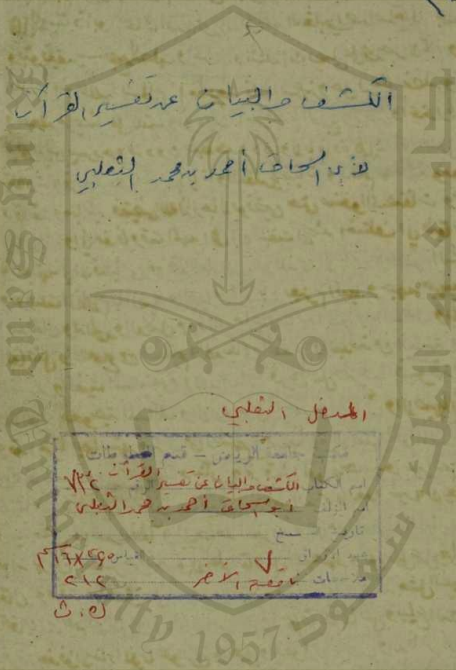 الكشف والبيان عن تفسير القرآن
لأبي اسحاق أحمد بن محمد الثعلبي
المدخل الثعلبي
مكتبة جامعة الرياض - قسم المخطوطات
اسم الكتاب الكشف والبيان عن تفسير القرآن الرقم ٧٣٢
اسم المؤلف أبو اسحاق أحمد بن محمد الثعلبي
تاريخ النسخ
عدد الأوراق القياس
ملاحظات ناقصة الآخر ٢١٢
ك.ث
King Saud University 1957
جامعة الملك سعود